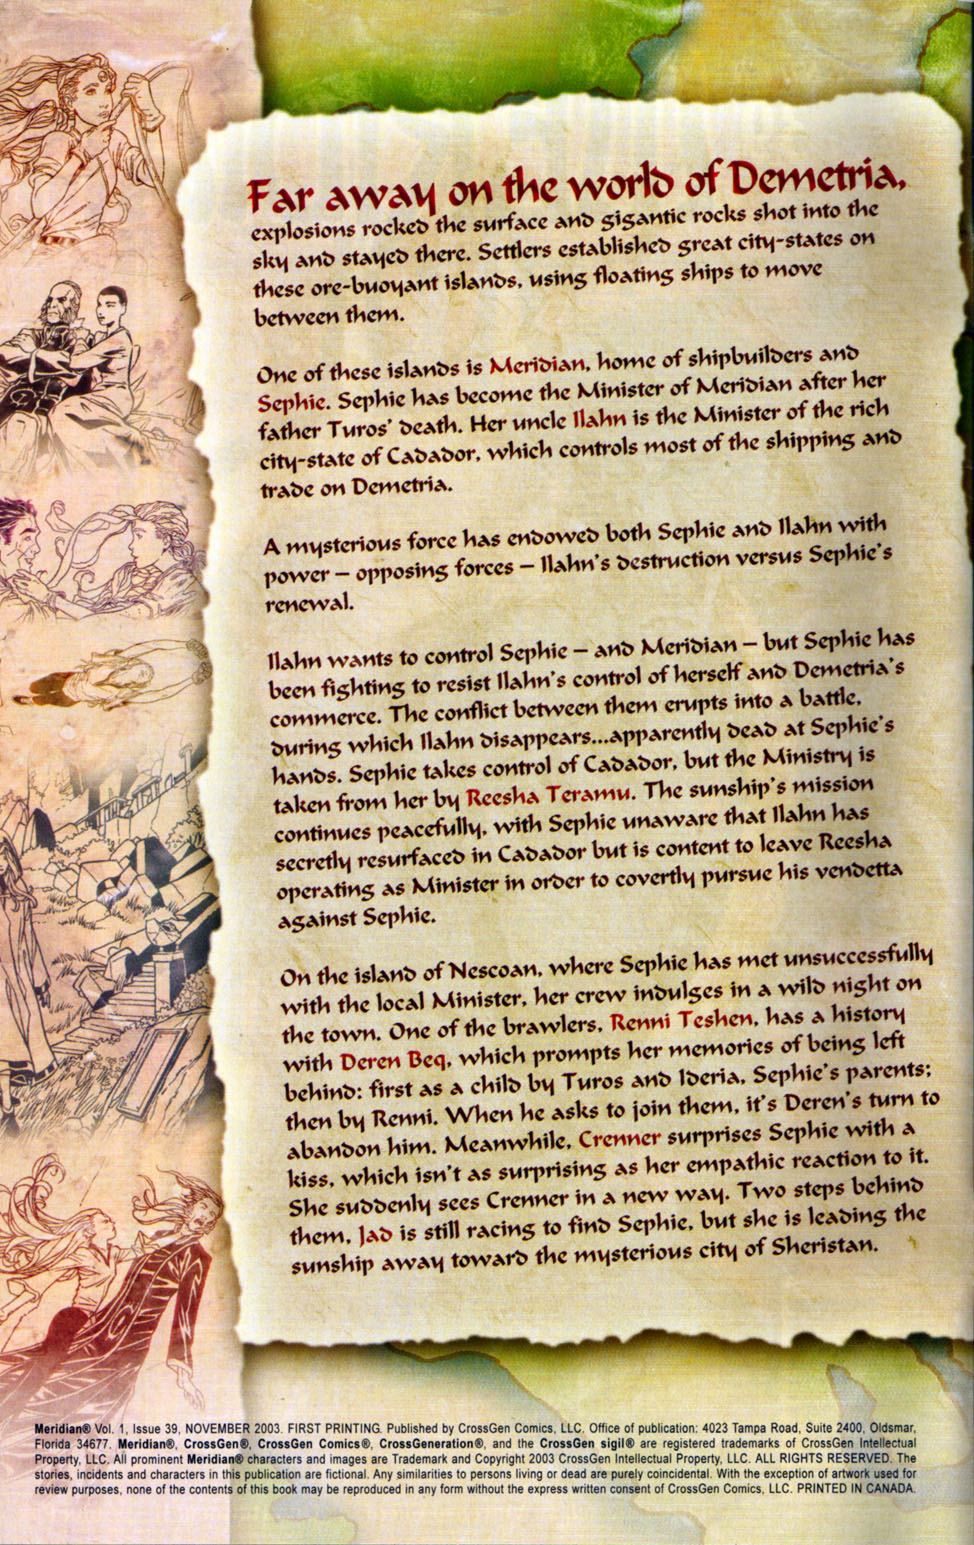 Far away on the world of Demetria,
explosions rocked the surface and gigantic rocks shot into the
sky and stayed there. Settlers established great city-states on
these ore-buoyant islands, using floating ships to move
between them.
One of these islands is Meridian, home of shipbuilders and
Sephie. Sephie has become the Minister of Meridian after her
father Turos' death. Her uncle Ilahn is the Minister of the rich
city-state of Cadador, which controls most of the shipping and
trade on Demetria.
A mysterious force has endowed both Sephie and Ilahn with
power – opposing forces – Ilahn's destruction versus Sephie's
renewal.
Ilahn wants to control Sephie – and Meridian – but Sephie has
been fighting to resist Ilahn's control of herself and Demetria's
commerce. The conflict between them erupts into a battle,
during which Ilahn disappears...apparently dead at Sephie's
hands. Sephie takes control of Cadador, but the Ministry is
taken from her by Reesha Teramu. The sunship's mission
continues peacefully, with Sephie unaware that Ilahn has
secretly resurfaced in Cadador but is content to leave Reesha
operating as Minister in order to covertly pursue his vendetta
against Sephie.
On the island of Nescoan, where Sephie has met unsuccessfully
with the local Minister, her crew indulges in a wild night on
the town. One of the brawlers, Renni Teshen, has a history
with Deren Beq, which prompts her memories of being left
behind: first as a child by Turos and Ideria, Sephie's parents;
then by Renni. When he asks to join them, it's Deren's turn to
abandon him. Meanwhile, Crenner surprises Sephie with a
kiss, which isn't as surprising as her empathic reaction to it.
She suddenly sees Crenner in a new way. Two steps behind
them, Jad is still racing to find Sephie, but she is leading the
sunship away toward the mysterious city of Sheristan.
Meridian® Vol. 1, Issue 39, NOVEMBER 2003. FIRST PRINTING. Published by CrossGen Comics, LLC. Office of publication: 4023 Tampa Road, Suite 2400, Oldsmar,
Florida 34677. Meridian®, CrossGen®, CrossGen Comics®, CrossGeneration®, and the CrossGen sigil® are registered trademarks of CrossGen Intellectual
Property, LLC. All prominent Meridian® characters and images are Trademark and Copyright 2003 CrossGen Intellectual Property, LLC. ALL RIGHTS RESERVED. The
stories, incidents and characters in this publication are fictional. Any similarities to persons living or dead are purely coincidental. With the exception of artwork used for
review purposes, none of the contents of this book may be reproduced in any form without the express written consent of CrossGen Comics, LLC. PRINTED IN CANADA.